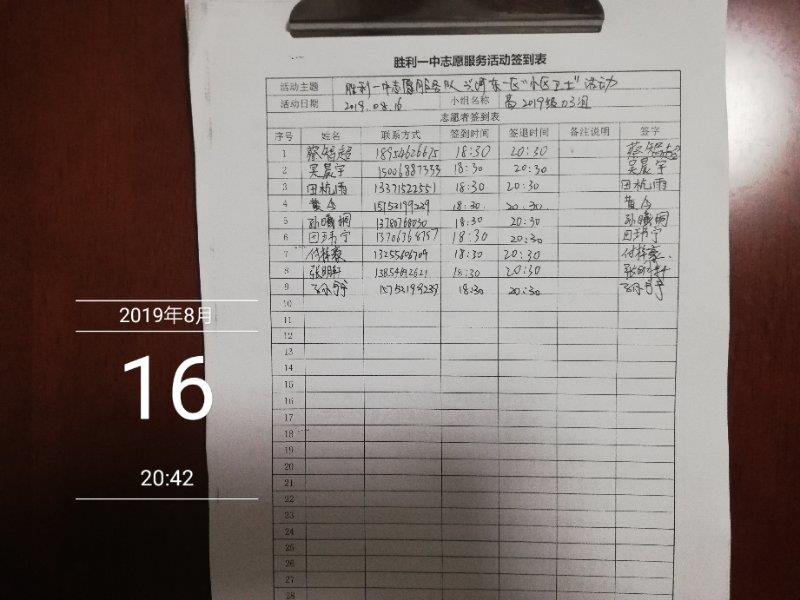 胜利一中志愿服务活动签到表
活动主题 胜利一中志愿服务队 兴河东一区"小区卫士"活动
活动日期 2019.08.16 小组名称 高2019级03组
志愿者签到表
序号 姓名 联系方式 签到时间 签退时间 备注说明 签字
1 蔡智超 18954626675 18:30 20:30 蔡智超
2 吴晨宇 15006887333 18:30 20:30 吴晨宇
3 田杭雨 13371522551 18:30 20:30 田杭雨
4 黄今 15153199239 18:30 20:30 黄今
5 孙曦桐 18:30 20:30 孙曦桐
6 田玮宁 13706368757 18:30 20:30 田玮宁
7 付梓豪 13255606709 18:30 20:30 付梓豪
8 18:30 20:30
9 15752199239 18:30 20:30
10
11
12
13
14
15
16
17
18
19
20
21
22
23
24
25
26
27
28
2019年8月
16
20:42